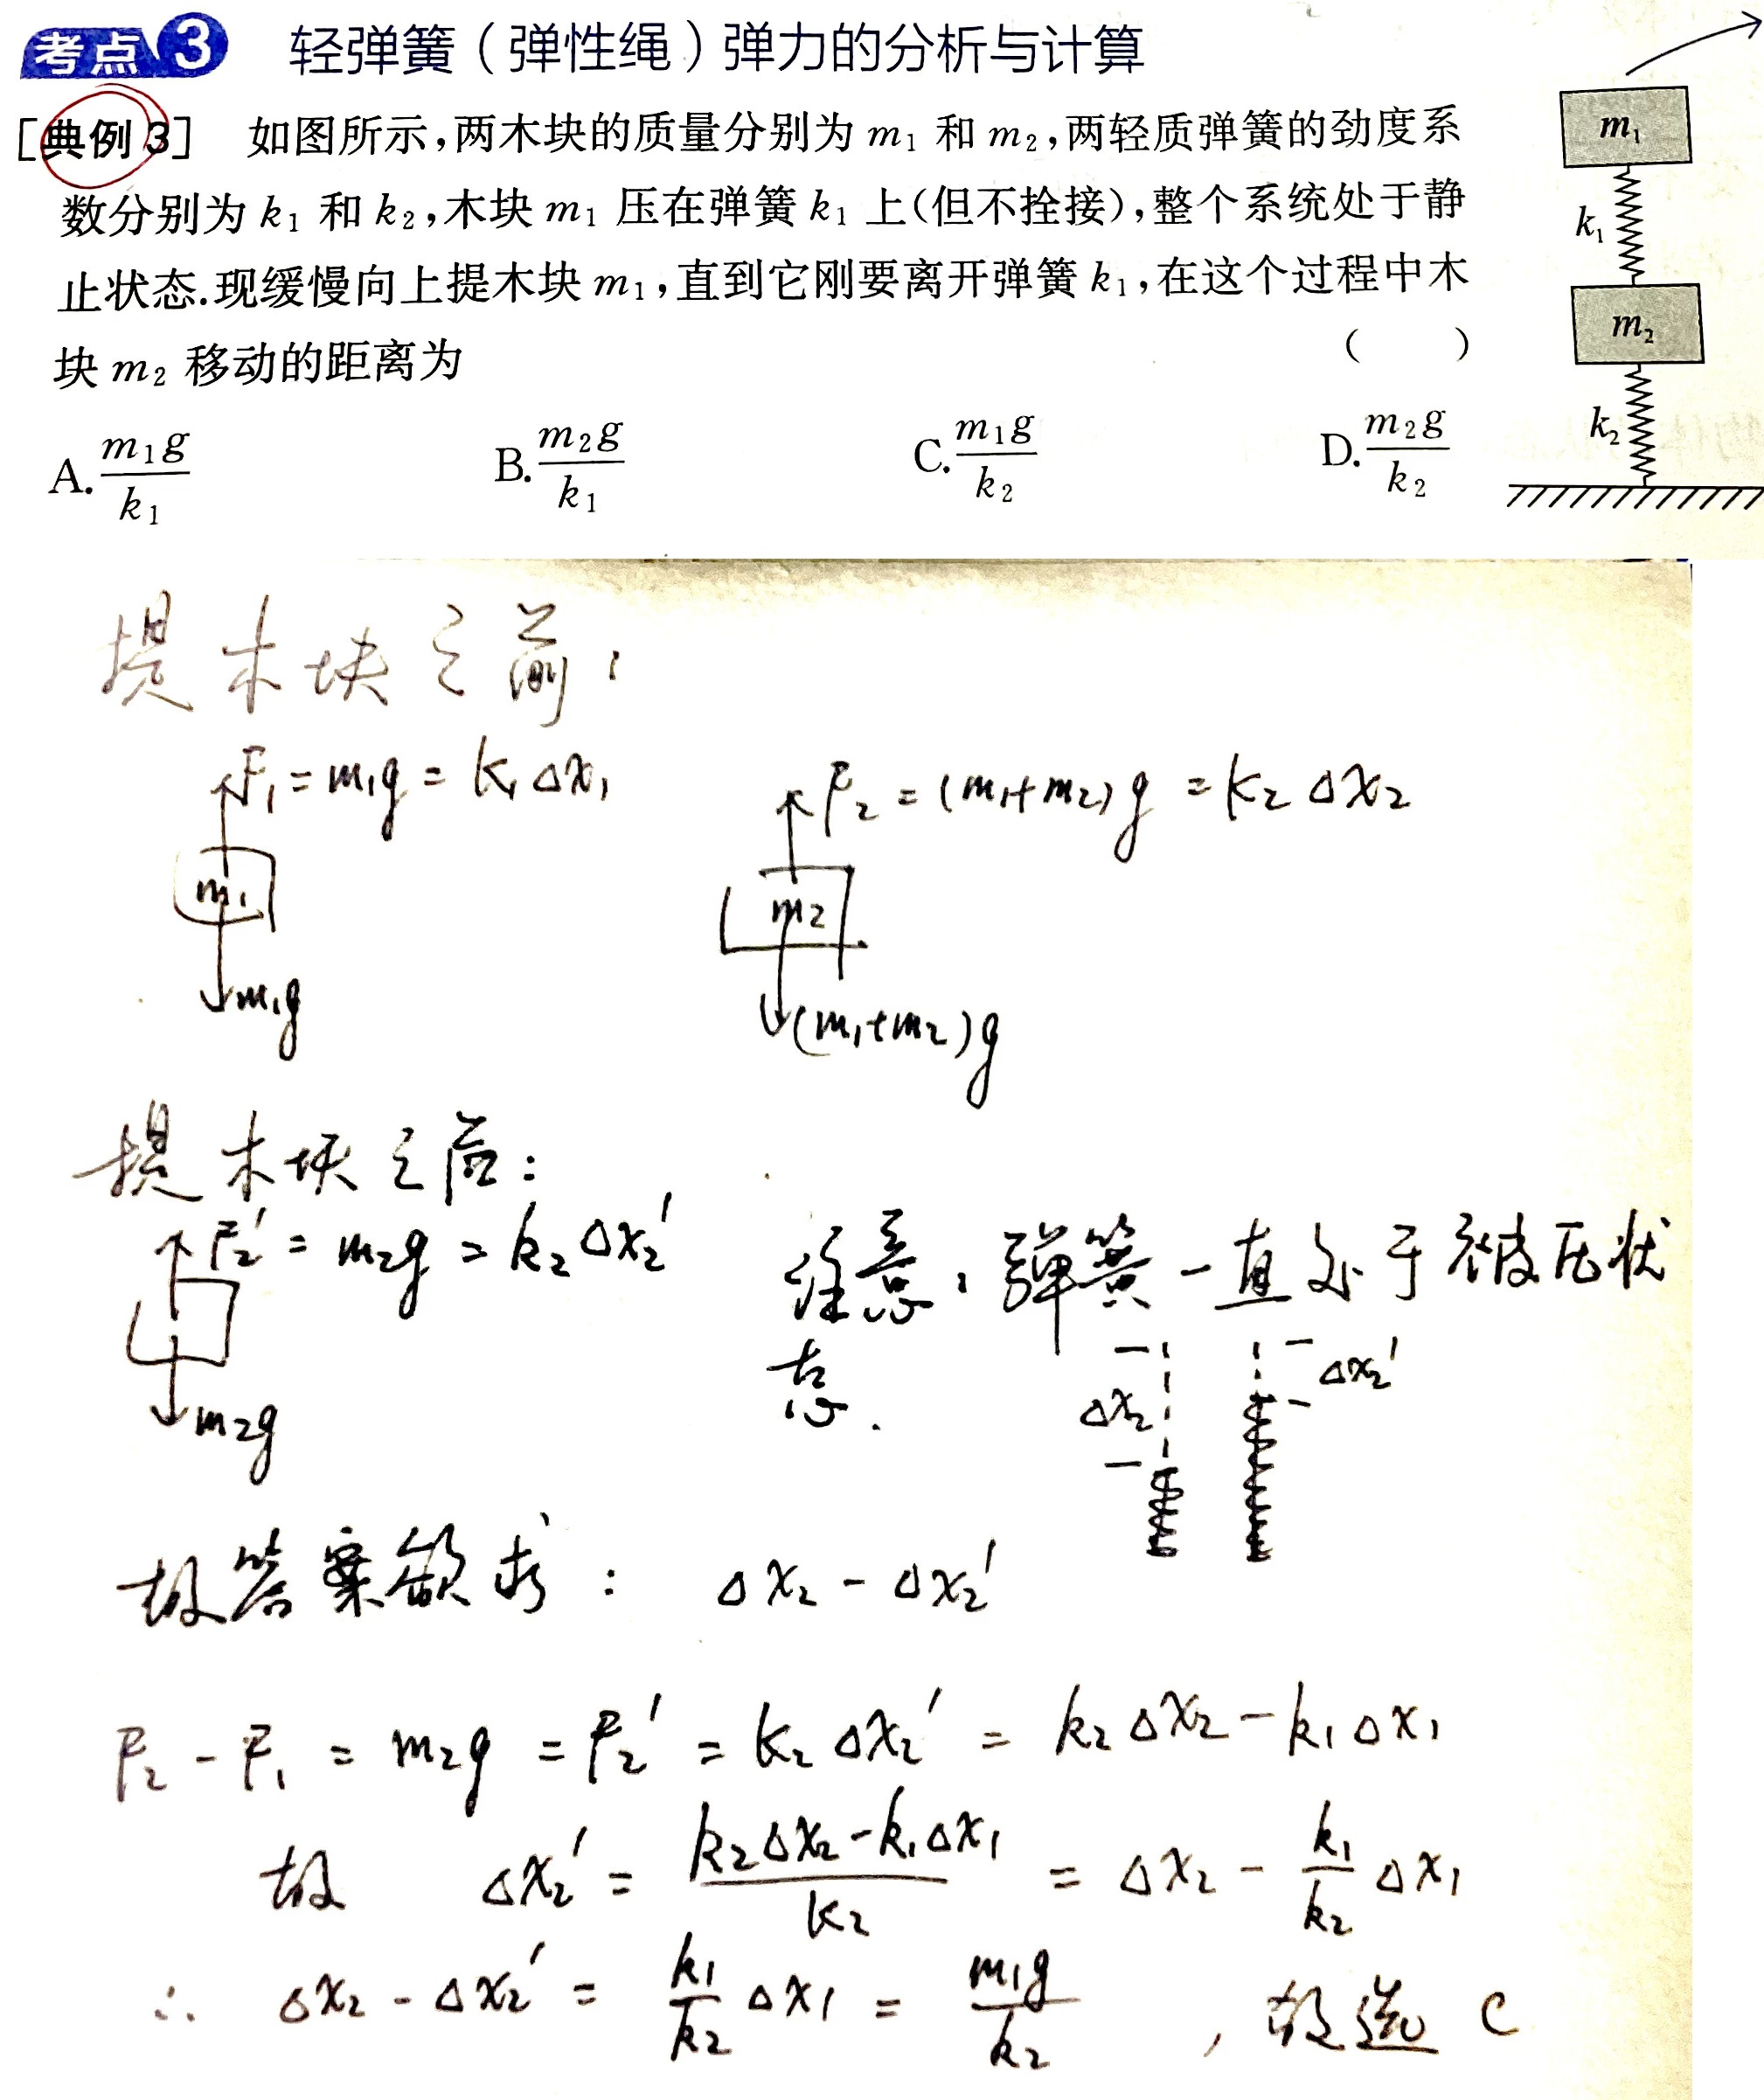 考点3 轻弹簧(弹性绳)弹力的分析与计算
[典例3] 如图所示,两木块的质量分别为 m₁ 和 m₂,两轻质弹簧的劲度系
数分别为 k₁ 和 k₂,木块 m₁ 压在弹簧 k₁ 上(但不拴接),整个系统处于静
止状态.现缓慢向上提木块 m₁,直到它刚要离开弹簧 k₁,在这个过程中木
块 m₂ 移动的距离为 ( )
A. m₁g/k₁ B. m₂g/k₁ C. m₁g/k₂ D. m₂g/k₂
m₁
k₁
m₂
k₂
提木块之前:
F₁ = m₁g = k₁Δx₁
m₁
m₁g
F₂ = (m₁+m₂)g = k₂Δx₂
m₂
(m₁+m₂)g
提木块之后:
F₂' = m₂g = k₂Δx₂'
m₂g
注意:弹簧一直处于被压状
态.
Δx₂ Δx₂'
故答案欲求: Δx₂ - Δx₂'
F₂ - F₁ = m₂g = F₂' = k₂Δx₂' = k₂Δx₂ - k₁Δx₁
故 Δx₂' = (k₂Δx₂ - k₁Δx₁)/k₂ = Δx₂ - k₁/k₂ Δx₁
∴ Δx₂ - Δx₂' = k₁/k₂ Δx₁ = m₁g/k₂ ,故选 C